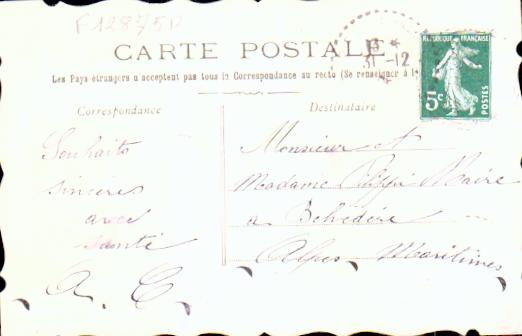 F12875D
CARTE POSTALE
31-12
RÉPUBLIQUE FRANÇAISE
5c
POSTES
Les Pays étrangers n acceptent pas tous la Correspondance au recto (Se renseigner à l
Correspondance
Destinataire
Souhaits
sincères
avec
santé
A. C.
Monsieur et
Madame Maire
à Belvédère
Alpes Maritimes